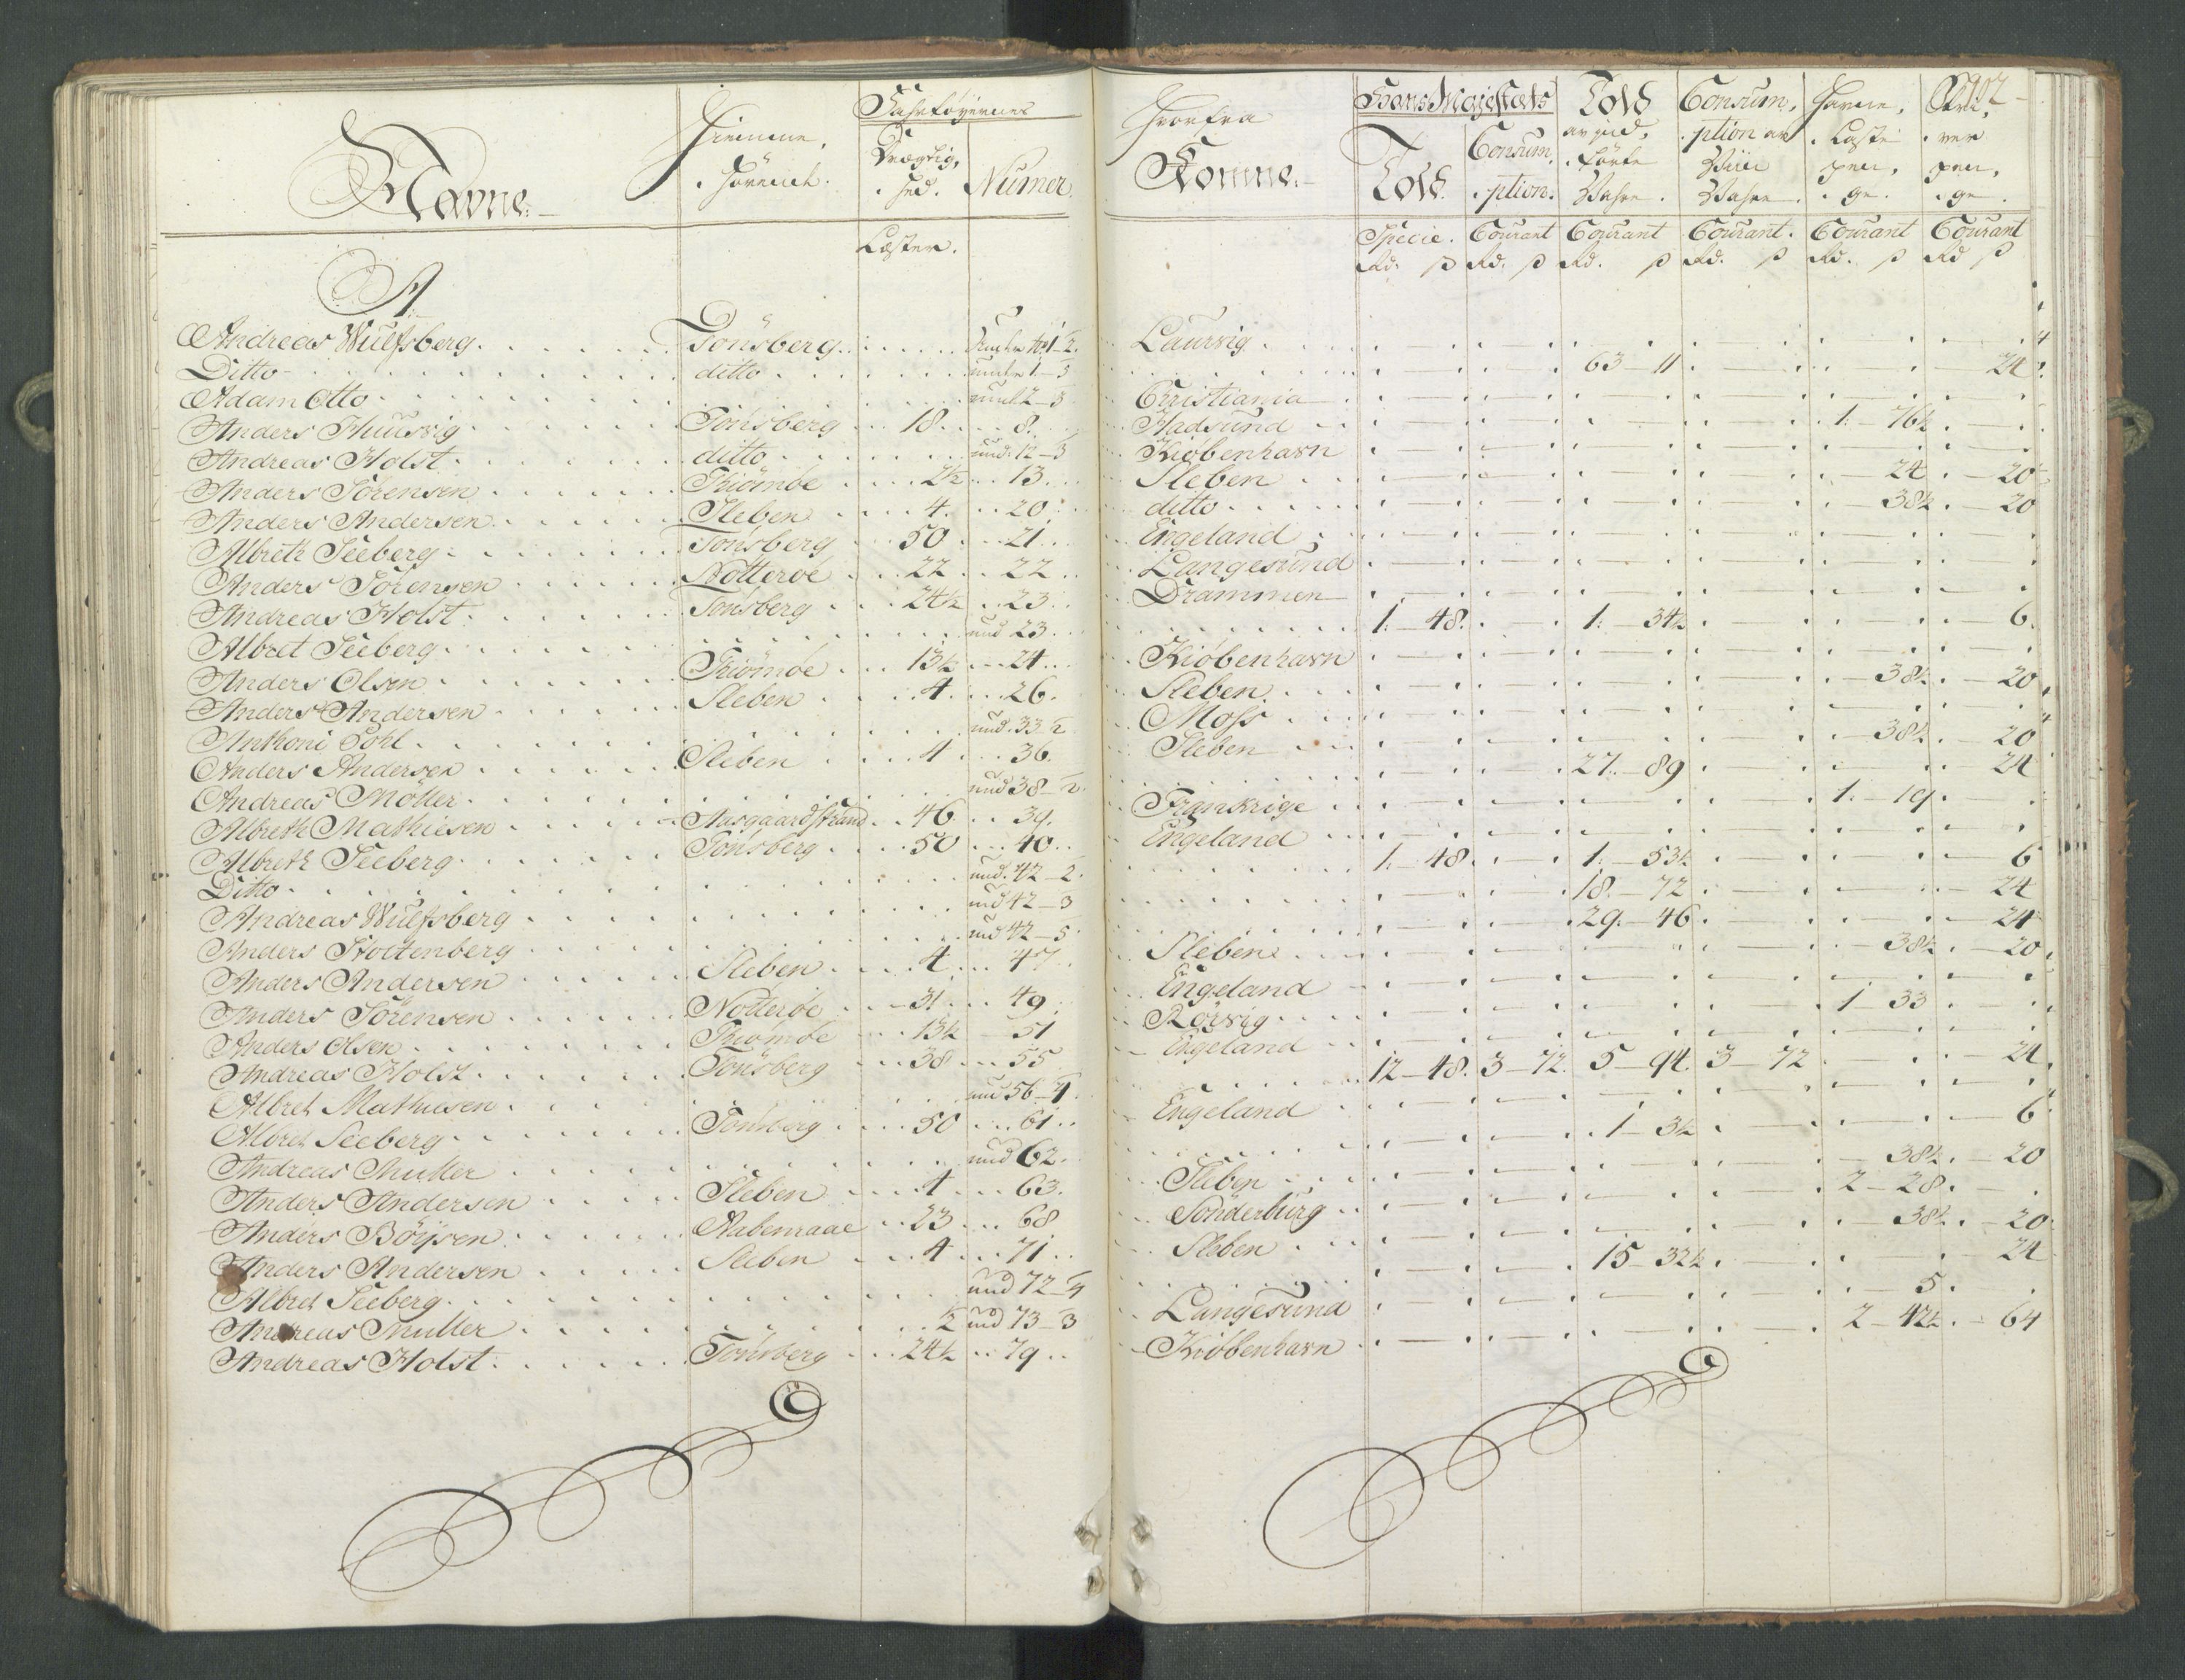 Navne.
Hiemme,
hörende.
Fahrtöyernes
Drægtig,
hed.
Numer.
Læster.
A
Andreas Wulfsberg. Tönsberg. Under No 1-2.
Ditto ditto under 1-3
Adam Otto und 2-3
Anders Huusvig Tönsberg 18. 8.
Andreas Holst. ditto und 12-3
Anders Sörensen Thiömöe 2½ 13.
Anders Andersen Sleben 4. 20
Albreth Seeberg Tönsberg 50 21
Anders Sörensen Nötteröe 22 22
Andreas Holst. Tönsberg 24½ 23
Albret Seeberg und 23
Anders Olsen Thiömöe 13½ 24
Anders Andersen Sleben 4 26.
Anthoni Pohl und 33-2
Anders Andersen Sleben 4 36.
Andreas Möller und 38-2
Albreth Mathiesen Aasgaardstrand 46 39.
Albreth Seeberg Tönsberg 50 40
Ditto und 42-2.
Andreas Wulfsberg und 42-3
Anders Stoltenberg und 42-5
Anders Andersen Sleben 4 47
Anders Sörensen Nötteröe 31 49
Anders Olsen Thiömöe 13½ 51
Andreas Holst Tönsberg 38 55
Albret Mathiesen und 56-4
Albret Seeberg Tönsberg 50 61
Andreas Muller und 62.
Anders Andersen Sleben 4 63.
Anders Böysen Aabenraae 23 68
Anders Andersen Sleben 4 71
Albret Seeberg und 72-4
Andreas Muller ½ und 73-3
Andreas Holst Tönsberg 24½ 79
Hvorfra
Komne.
Hans Majestæts
Told. Consum,
ption.
Told
av ind,
förte
Vahre.
Consum,
ption av
Vahre.
Havne,
Laste
pen,
ge.
ver
pen,
ge.
Specie. Courant Courant Courant. Courant Courant
Rd. ß Rd. ß Rd. ß Rd. ß Rd. ß Rd ß
Laurvig
63-11 24
Christiania
Hadsund 1-76½
Kiöbenhavn
Sleben 24 20
ditto 38½ 20
Engeland
Langesund
Drammen
1-48. 1-34½ 6.
Kiöbenhavn
Sleben 38½ 20
Moss
Sleben 38½ 20
27-89 24
Frankrige 1-19
Engeland
1-48 1-53½ 6
18-72 24
29-46 24
Sleben 38½ 20
Engeland
Rörvig 1 33
Engeland
12-48. 3-72. 5-94. 3-72 24
Engeland
1-3½ 6
Sleben 38½ 20
Sönderburg 2-28
Sleben 38½ 20
15-32½ 24
Langesund 5
Kiöbenhavn 2-42½ 64